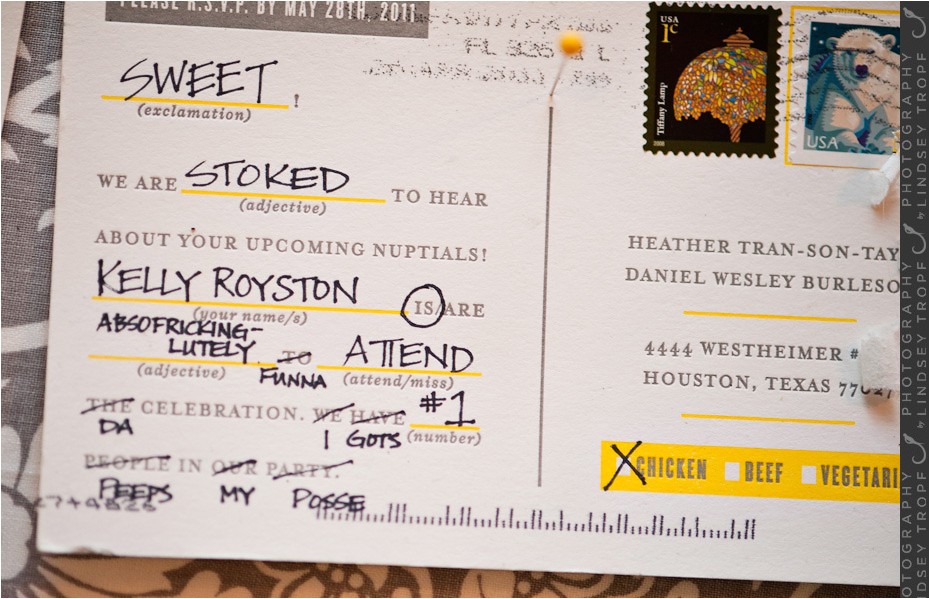 PLEASE R.S.V.P. BY MAY 28TH, 2011
SWEET !
(exclamation)
WE ARE STOKED TO HEAR
(adjective)
ABOUT YOUR UPCOMING NUPTIALS!
KELLY ROYSTON IS/ARE
(your name/s)
ABSOFRICKING-
LUTELY TO ATTEND
(adjective) FUNNA (attend/miss)
THE CELEBRATION. WE HAVE #1
DA I GOTS (number)
PEOPLE IN OUR PARTY.
PEEPS MY POSSE
USA
1c
Tiffany Lamp
2008
USA
HEATHER TRAN-SON-TAY
DANIEL WESLEY BURLESO
4444 WESTHEIMER #
HOUSTON, TEXAS 77027
X CHICKEN BEEF VEGETARI
PHOTOGRAPHY
by LINDSEY TROPF
PHOTOGRAPHY
by LINDSEY TROPF
OTOGRAPHY
NDSEY TROPF